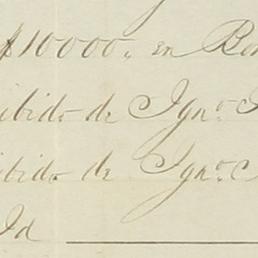 $10000. en Bon
ibido de Ygno.
ibido de Ygno.
Id